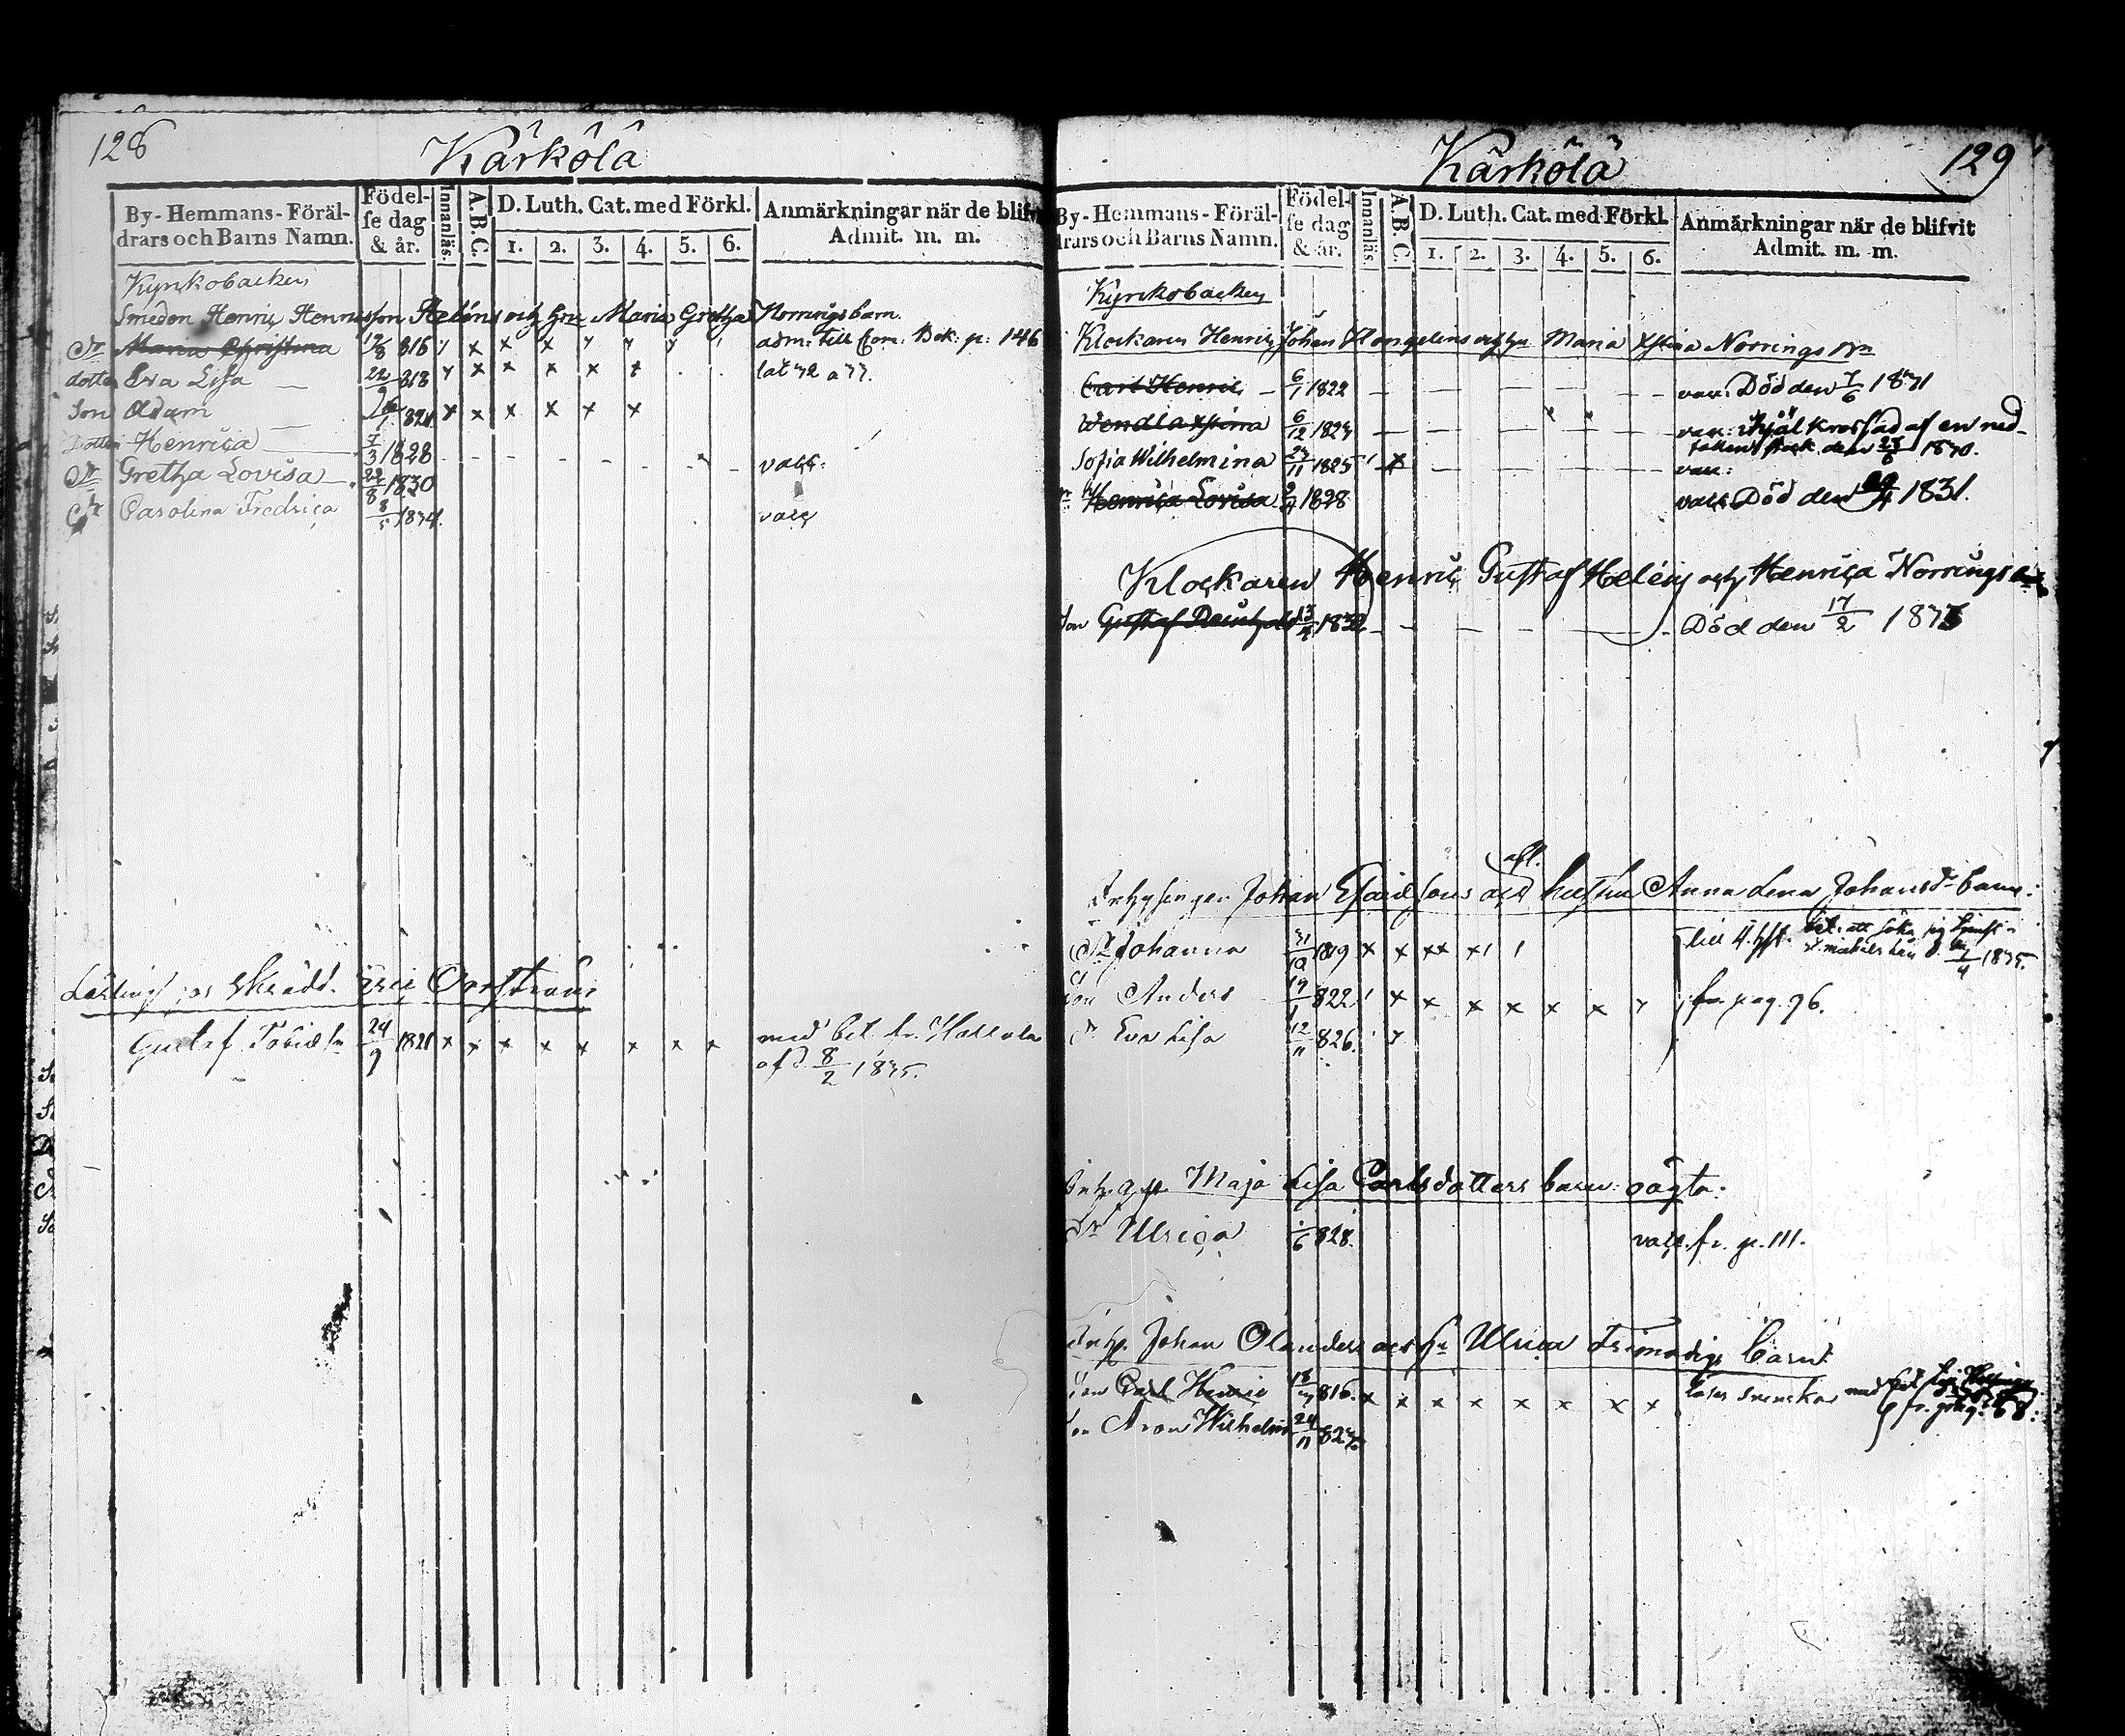 128
Kärkölä
By-Hemmans-Föräl-
drars och Barns Namn.
Födel-
se dag
& år.
Innanläs.
A.B.C.
D. Luth. Cat. med Förkl.
1. 2. 3. 4. 5. 6.
Anmärkningar när de blifv
Admit. m. m.
Kyrkobacken
Smeden Henric Henricsson Heléns och hru Maria Gretha Norrings barn
Maria Christina 17/8 816 adm: till Com: Bok: p: 146
dotter Eva Lisa 22/9 818
Son Adam 26/1 821
Dotter Henrica 7/3 1828
Dr Gretha Lovisa 22/8 1830 vacc:
Dr Carolina Fredrica 8/5 1834 vacc
Skrädd. Eric
Gustaf Tobiæ Sn 24/9 1821 med bet. fr. Hollola
af d. 8/2 1835.
Kärkölä
129
By-Hemmans-Föräl-
drars och Barns Namn.
Födel-
se dag
& år.
Innanläs.
A.B.C.
D. Luth. Cat. med Förkl.
1. 2. 3. 4. 5. 6.
Anmärkningar när de blifvit
Admit. m. m.
Kyrkobacken
Klockaren Henric Johan och hu Maria Xstina Norrings
Carl Henric 6/1 1822 vacc: Död den 7/6 1831
Wendla Xstina 6/12 1823 vacc: Ihjäl krossad af en ned-
fallen stock den 1830.
Sofia Wilhelmina 23/11 1825 vacc:
Henrica Lovisa 1828 vacc: Död den 29/4 1831.
Klockaren Henric Gustaf Heléns och Henrica Norrings
Son Gustaf 13/4 1832 Död den 17/2 1833
afl.
Inhysingen Johan Esaiæsons och hustru Anna Lena Johansdr barn:
Dr Johanna 31/10 819 bet. att söka sig tjenst i
St. Michels län d. 1835.
Son Anders 19/1 822 fr. pag. 76.
Dr Eva Lisa 12/11 826.
Maja Lisa Carlsdotters barn: oägta.
Dr Ulrica 6 828. vacc. fr. p. 111.
Inh. Johan Olanders och hu Ulrica barn:
Son Carl Henric 18 816. läser svenska med bet
fr. pag. 68:
Son Aron Wilhelm 24/11 823